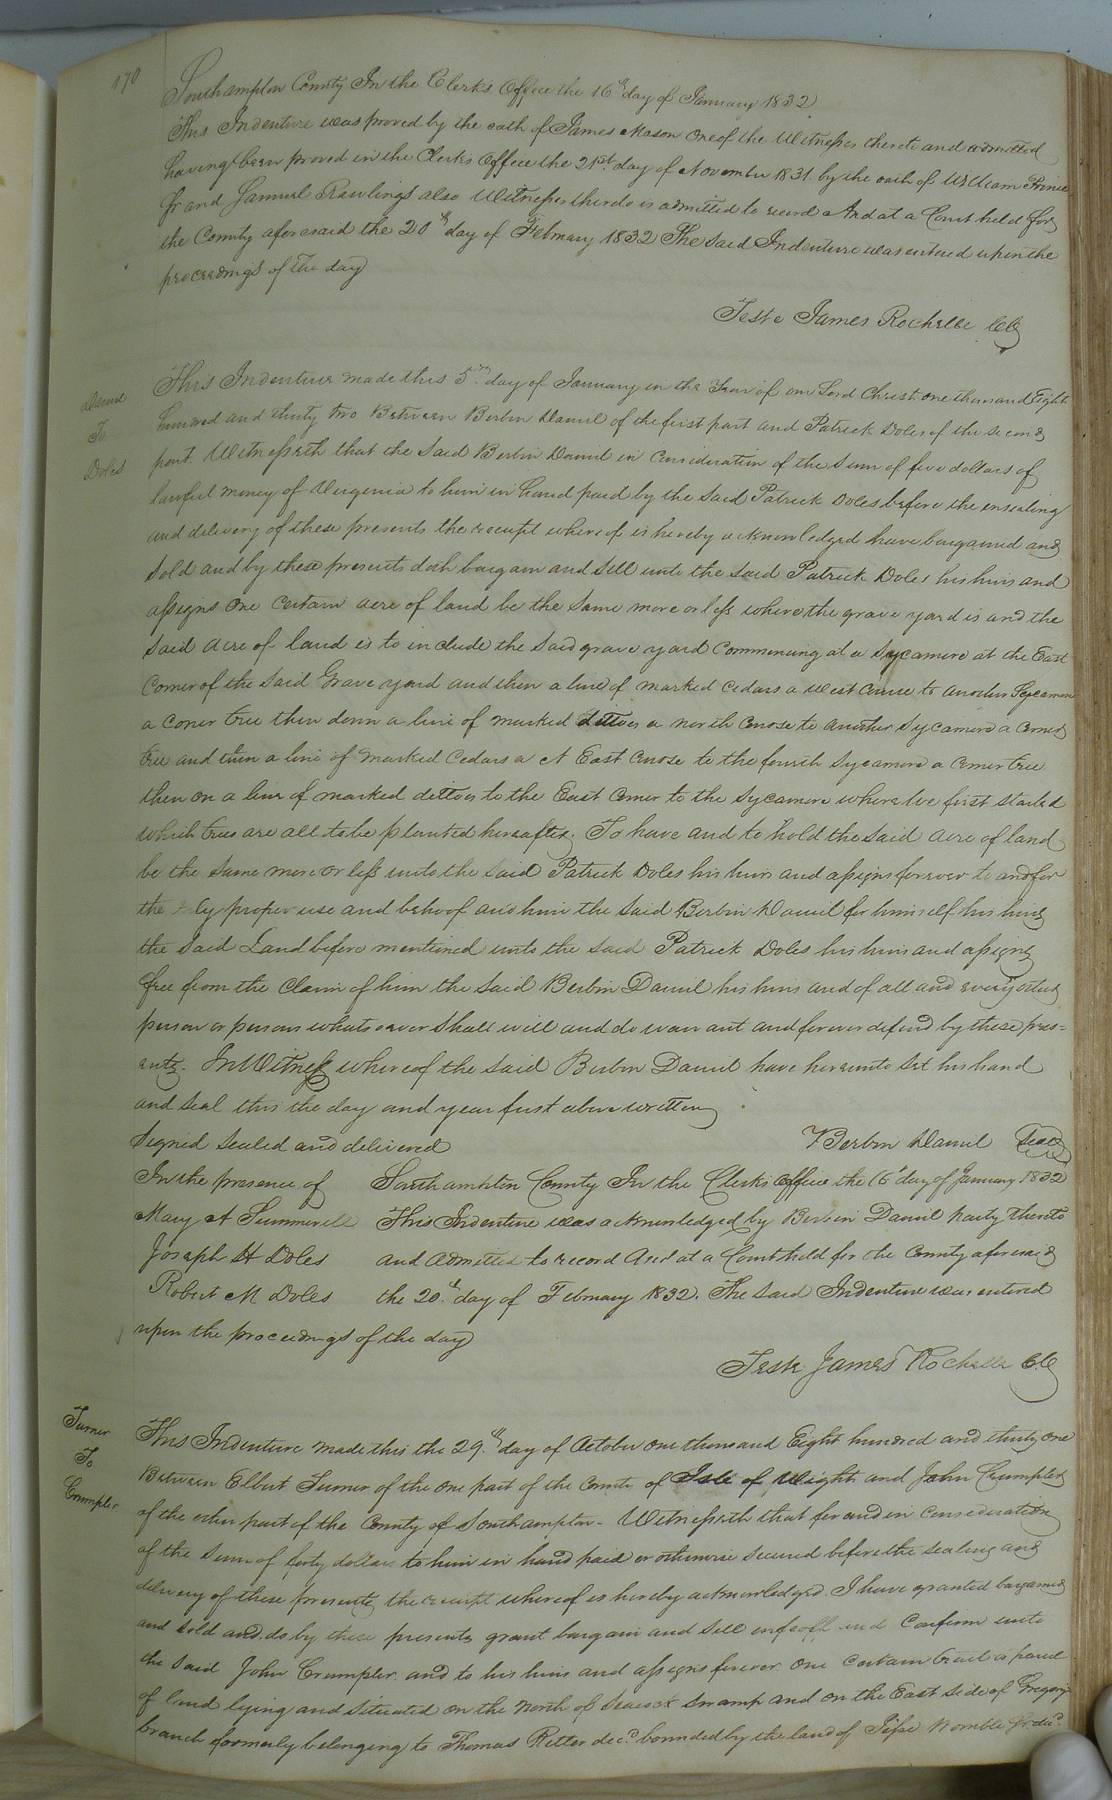 170
Southampton County In the Clerks Office the 16th day of January 1832
This Indenture was proved by the oath of James Mason one of the Witnesses thereto and admitted
having been proved in the Clerks Office the 21st day of November 1831 by the oath of William Prince
Jr and Samuel Rawlings also Witnesses thereto is admitted to record And at a Court held for
the County aforesaid the 20th day of February 1832 The said Indenture was entered upon the
proceedings of the day
Teste James Rochelle CC
Daniel
To
Doles
This Indenture made this 5th day of January in the Year of our Lord Christ one thousand Eight
hundred and thirty two Between Berbin Daniel of the first part and Patrick Doles of the second
part. Witnesseth that the said Berbin Daniel in Consideration of the sum of five dollars of
lawful money of Virginia to him in hand paid by the said Patrick Doles before the ensealing
and delivery of these presents the receipt whereof is hereby acknowledged have bargained and
sold and by these presents doth bargain and sell unto the said Patrick Doles his heirs and
assigns one certain acre of land be the same more or less where the grave yard is and the
said acre of land is to include the said grave yard Commencing at a Sycamore at the East
Corner of the said Grave yard and then a line of marked cedars a west Course to another Sycamore
a corner tree then down a line of marked dittoes a north Course to another sycamore a corner
tree and then a line of marked cedars a N East Course to the fourth sycamore a corner tree
then on a line of marked dittoes to the East Corner to the sycamore where we first started
which trees are all to be planted hereafter. To have and to hold the said acre of land
be the same more or less unto the said Patrick Doles his heirs and assigns forever to and for
the only proper use and behoof and him the said Berbin Daniel for himself his heirs
the said Land before mentioned unto the said Patrick Doles his heirs and assigns
free from the Claim of him the said Berbin Daniel his heirs and of all and every other
person or persons whatsoever shall will and do warrant and forever defend by these pres=
ents. In Witness whereof the said Berbin Daniel have hereunto set his hand
and seal this the day and year first above written
Signed sealed and delivered Berbin Daniel Seal
In the presence of Southampton County In the Clerks office the 16th day of January 1832
Mary A Summerell This Indenture was acknowledged by Berbin Daniel party thereto
Joseph H Doles and admitted to record And at a Court held for the County aforesaid
Robert M Doles the 20th day of February 1832. The said Indenture was entered
upon the proceedings of the day
Teste James Rochelle CC
Turner
To
Crumpler
This Indenture made this the 29th day of October one thousand Eight hundred and thirty one
Between Elbert Turner of the one part of the County of Isle of Wight and John Crumpler
of the other part of the County of Southampton - Witnesseth that for and in Consideration
of the sum of forty dollars to him in hand paid or otherwise secured before the sealing and
delivery of these presents the receipt whereof is hereby acknowledged. I have granted bargained
and sold and do by these presents grant bargain and sell enfeoff and Confirm unto
the said John Crumpler and to his heirs and assigns forever one Certain tract or parcel
of land lying and situated on the North of Seacock swamp and on the East side of Gregory
branch formerly belonging to Thomas Ritter decd bounded by the land of Jesse Womble Jr decd